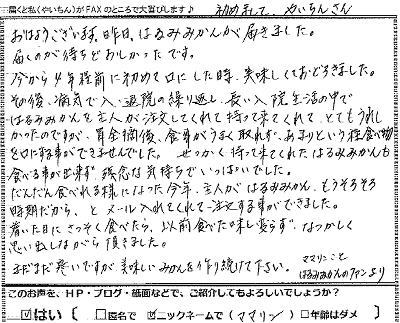 届くと私(やいちん)がFAXのところで大喜びします♪ 初めまして やいちんさん
おはようございます。昨日、はるみみかんが届きました。
届くのが待ちどおしかったです。
今から4年程前に初めて口にした時、美味しくておどろきました。
その後、病気で入・退院の繰り返し、長い入院生活の中で
はるみみかんを主人が注文してくれて持って来てくれて、とてもうれし
かったのですが、胃全摘後、食事がうまく取れず、あまりという程食べ物
を口にする事ができませんでした。せっかく持って来てくれたはるみみかんも
食べる事が出来ず残念な気持ちでいっぱいでした。
だんだん食べれる様になった今年、主人が はるみみかん、もうそろそろ
時期だから、とメール入れてくれて注文する事ができました。
着いた日にさっそく食べたら、以前食べた味と変らず、なつかしく
思い出しながら頂きました。
まだまだ寒いですが美味しいみかんを作り続けて下さい。
ママリンこと
はるみみかんのファンより
このお声を、HP・ブログ・紙面などで、ご紹介してもよろしいでしょうか?
はい( □匿名で ニックネームで(ママリン) □年齢はダメ )